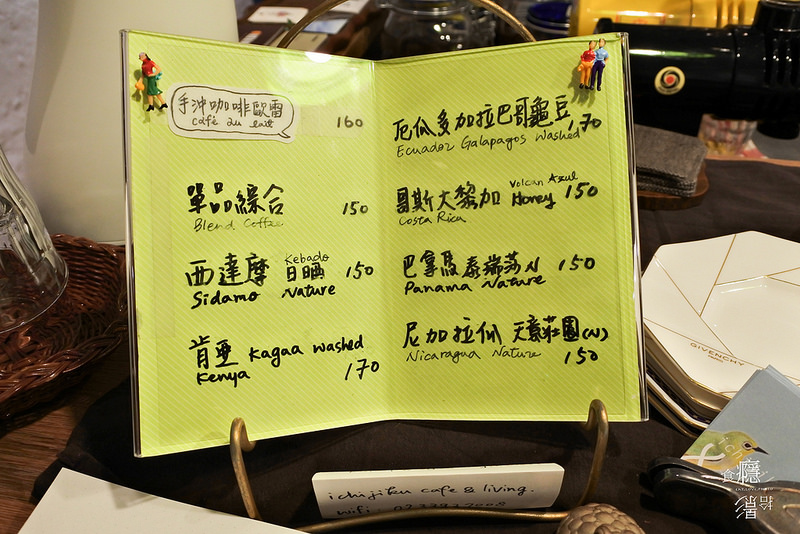 手沖咖啡歐蕾 160
café au lait
單品綜合 150
Blend Coffee
西達摩 Kebado 日曬 150
Sidamo Nature
肯亞 Kagaa washed
Kenya 170
厄瓜多加拉巴哥龜豆
Ecuador Galapagos Washed 170
哥斯大黎加 Volcan Azul Honey 150
Costa Rica
巴拿馬 泰瑞莎 N 150
Panama Nature
尼加拉瓜 天意莊園(N)
Nicaragua Nature 150
ichijiku cafe & living.
wifi:
GIVENCHY
食癮
拾影